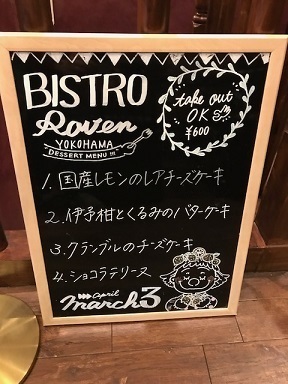 BISTRO
Roven
YOKOHAMA
DESSERT MENU!!!
take out
OK
¥600
1. 国産レモンのレアチーズケーキ
2. 伊予柑とくるみのバターケーキ
3. クランブルのチーズケーキ
4. ショコラテリーヌ
April
March 3